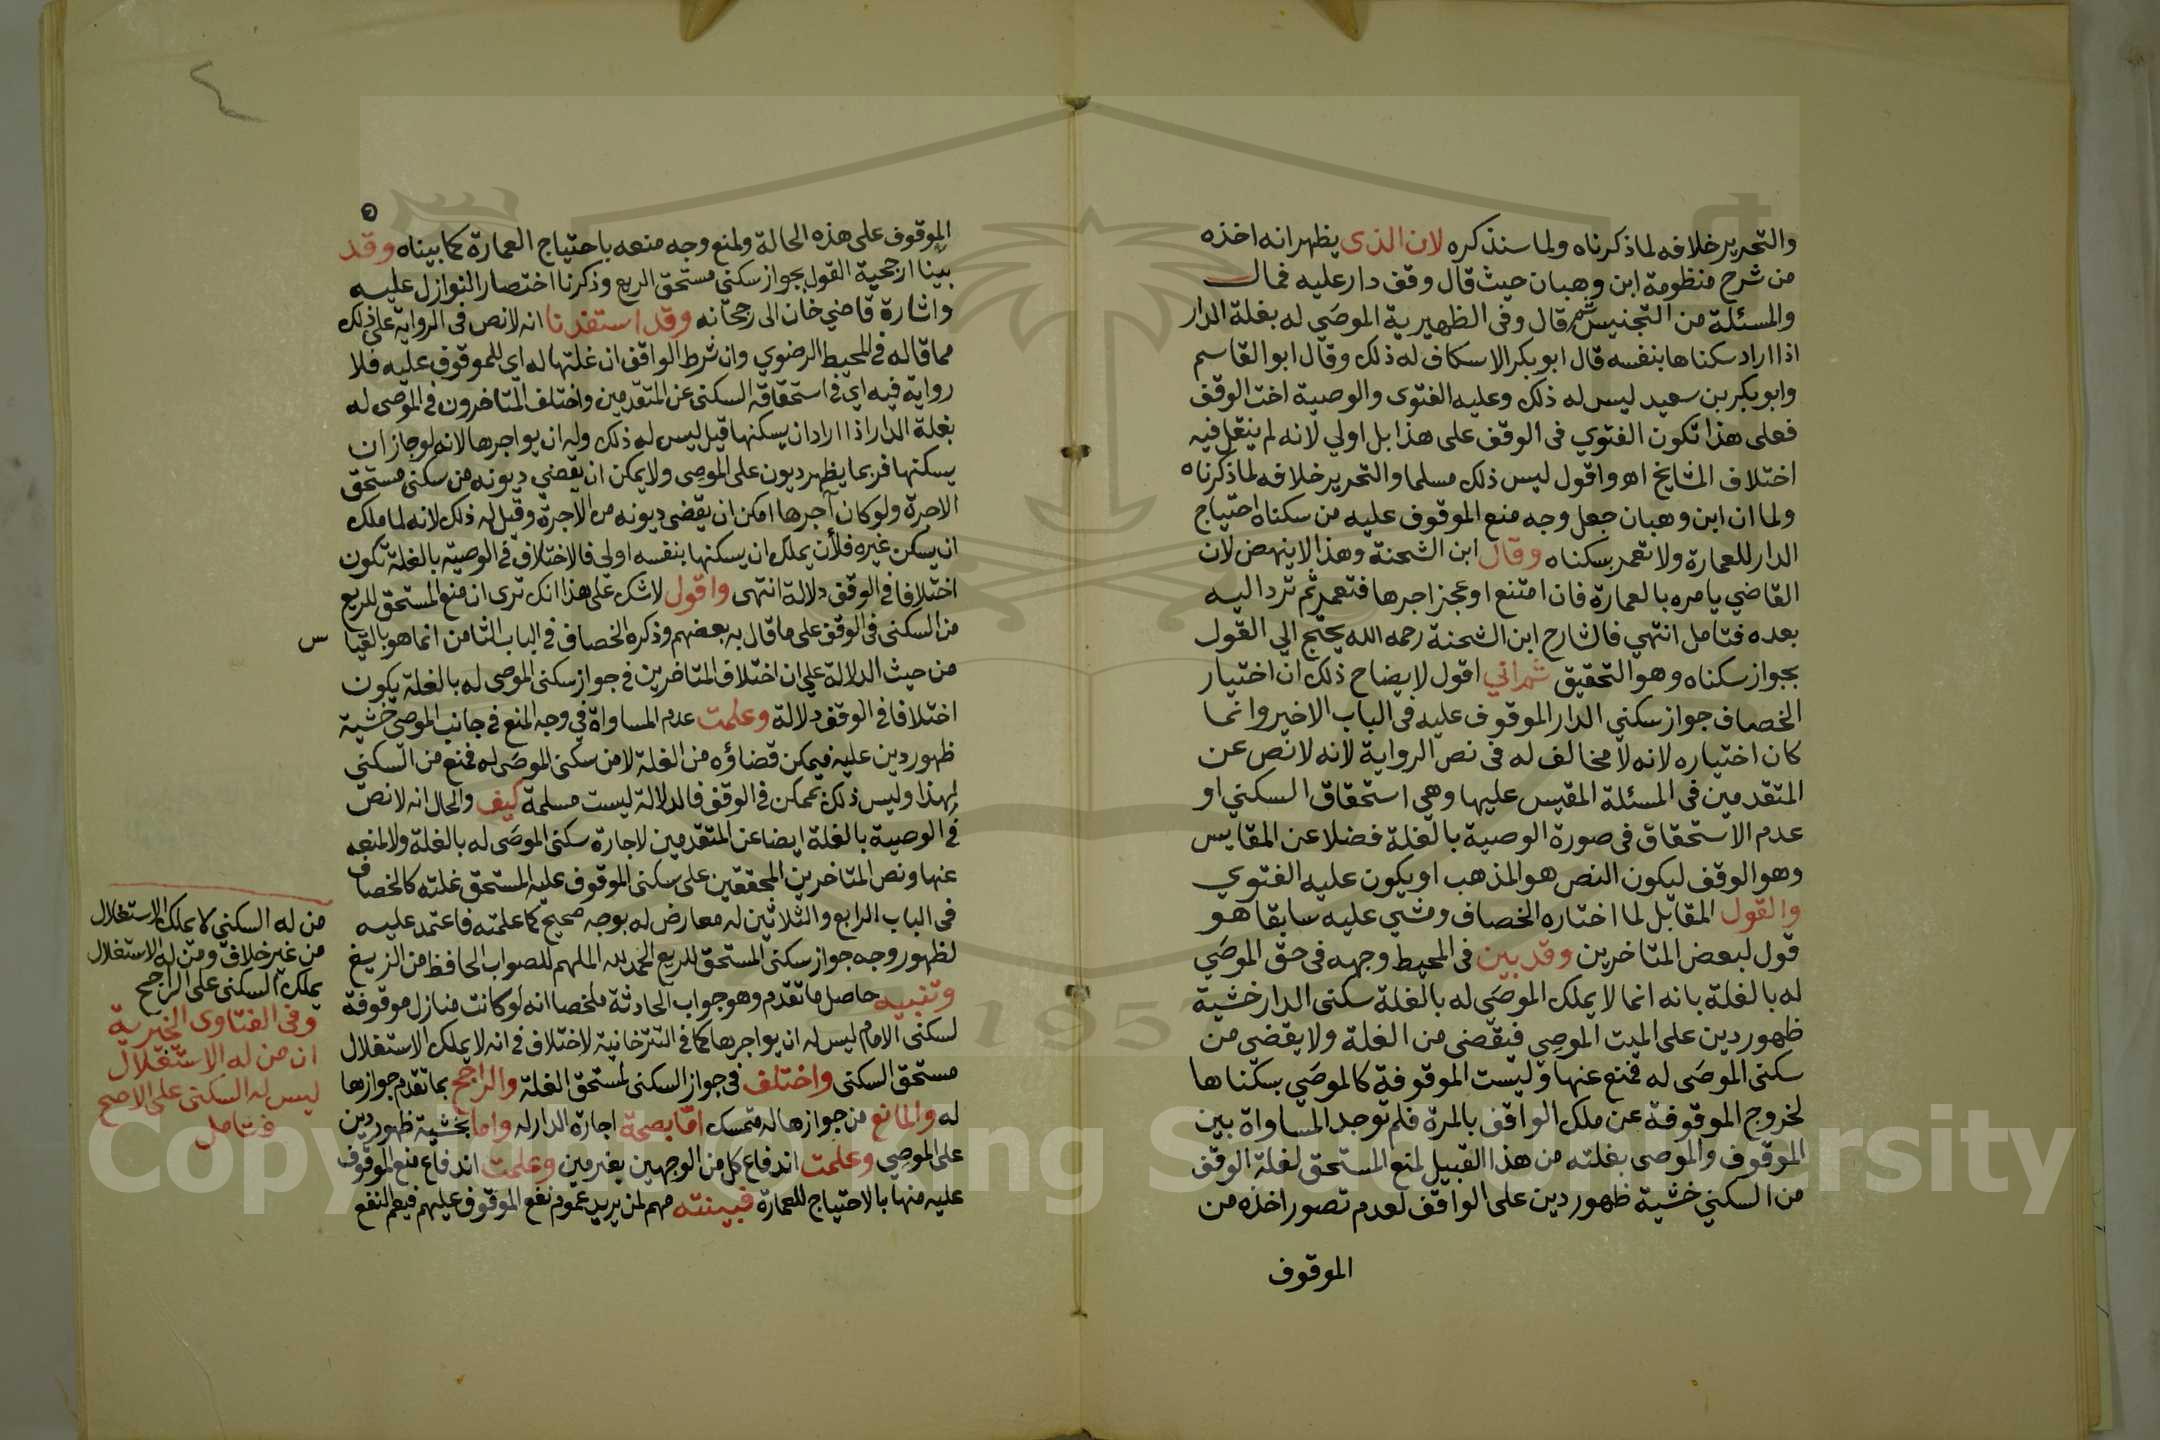 والتحرير خلافه لما ذكرناه ولما سنذكره لان الذى يظهر انه اخذه
من شرح منظومة ابن وهبان حيث قال وقف دار عليه فمال
والمسئلة من التجنيس ثم قال وفى الظهيرية الموصَى له بغلة الدار
اذا اراد سكناها بنفسه قال ابو بكر الاسكاف له ذلك وقال ابو القاسم
وابو بكر بن سعيد ليس له ذلك وعليه الفتوى والوصية اخت الوقف
فعلى هذا تكون الفتوي فى الوقف على هذا بل اولي لانه لم ينقل فيه
اختلاف المشايخ اه واقول ليس ذلك مسلما والتحرير خلافه لما ذكرناه
ولما ان ابن وهبان جعل وجه منع الموقوف عليه من سكناه احتياج
الدار للعمارة ولا تعمر بسكناه وقال ابن الشحنة وهذا لا ينهض لان
القاضي يامره بالعمارة فان امتنع او عجز اجرها فتعمر ثم ترد اليه
بعده فتامل انتهي فالشارح ابن الشحنة رحمه الله يجنح الي القول
بجواز سكناه وهو التحقيق ثم انى اقول لايضاح ذلك ان اختيار
الخصاف جواز سكني الدار الموقوف عليه فى الباب الاخير وانما
كان اختياره لانه لا مخالف له فى نص الرواية لانه لا نص عن
المتقدمين فى المسئلة المقيس عليها وهي استحقاق السكني او
عدم الاستحقاق فى صورة الوصية بالغلة فضلا عن المقايس
وهو الوقف ليكون النص هو المذهب او يكون عليه الفتوي
والقول المقابل لما اختاره الخصاف ومشي عليه سابقا هو
قول لبعض المتاخرين وقد بين فى المحيط وجهه فى حق الموصَي
له بالغلة بانه انما لا يملك الموصَى له بالغلة سكنى الدار خشية
ظهور دين على الميت الموصِي فيقضى من الغلة ولا يقضى من
سكنى الموصَى له فمنع عنها وليست الموقوفة كالموصَي بسكناها
لخروج الموقوفة عن ملك الواقف بالمرة فلم توجد المساواة بين
الموقوف والموصى بغلته من هذا القبيل لمنع المستحق لغلة الوقف
من السكني خشية ظهور دين على الواقف لعدم تصور اخذه من
الموقوف
الموقوف على هذه الحالة ولمنع وجه منعه باحتياج العمارة كما بيناه وقد
بينا ارجحية القول بجواز سكنى مستحق الريع وذكرنا اختصار النوازل عليه
واشارة قاضي خان الى رجحانه وقد استفدنا انه لا نص فى الرواية على ذلك
مما قاله فى المحيط الرضوي وان شرط الواقف ان غلتها له اى للموقوف عليه فلا
رواية فيه اي فى استحقاقه السكنى عن المتقدمين واختلف المتاخرون فى الموَصى له
بغلة الدار اذا اراد ان يسكنها قيل ليس له ذلك وله ان يواجرها لانه لو جاز ان
يسكنها فربما يظهر ديون على الموصِى ولا يمكن ان يقضى ديونه من سكنى مستحق
الاجرة ولو كان آجرها امكن ان يقضى ديونه من الاجرة وقيل له ذلك لانه لما ملك
ان يسكن غيره فلأن يملك ان يسكنها بنفسه اولى فالاختلاف فى الوصية بالغلة تكون
اختلافا فى الوقف دلالة انتهى واقول لا شك على هذا انك ترى ان منع المستحق للريع
من السكنى فى الوقف على ما قال به بعضهم وذكره الخصاف فى الباب الثامن انما هو بالقيا س
من حيث الدلالة علي ان اختلاف المتاخرين فى جواز سكنى الموصى له بالغلة يكون
اختلافا فى الوقف دلالة وعلمت عدم المساواة في وجه المنع فى جانب الموصى خشية
ظهور دين عليه فيمكن قضاؤه من الغلة لا من سكنى الموصَى له فمنع من السكني
لهذا وليس ذلك بممكن فى الوقف فالدلالة ليست مسلمة كيف والحال انه لا نص
فى الوصية بالغلة ايضا عن المتقدمين لاجارة سكنى الموصَى له بالغلة ولا لمنعه
عنها ونص المتاخرين المحققين على سكنى الموقوف عليه المستحق غلته كالخصاف
فى الباب الرابع والثلاثين له معارض له بوجه صحيح كما علمته فاعتمد عليه
لظهور وجه جواز سكنى المستحق للريع الحمد لله الملهم للصواب الحافظ من الزيغ
وتنبيه حاصل ما تقدم وهو جواب الحادثة ملخصا انه لو كانت منازل موقوفة
لسكنى الامام ليس له ان يواجرها كما فى التترخانية لا ختلاف فى انه لا يملك الاستغلال
مستحق السكنى واختلف فى جواز السكنى لمستحق الغلة والراجح بما تقدم جوازها
له والمانع من جوازها له متمسك امّا بصحة اجارة الدار له واما بخشية ظهور دين
على الموصِي وعلمت اندفاع كل من الوجهين بغير مين وعلمت اندفاع منع الموقوف
عليه منها بالاحتياج للعمارة فبينته مهم لمن يريد عموم نفع الموقوف عليهم فيعم النفع
من له السكني لا يملك الاستغلال
من غير خلاف ومن له الاستغلال
يملك السكنى على الراجح
وفى الفتاوى الخيرية
ان من له الاستغلال
ليس له السكنى على الاصح
فتامل
Copyright © King Saud University
1957